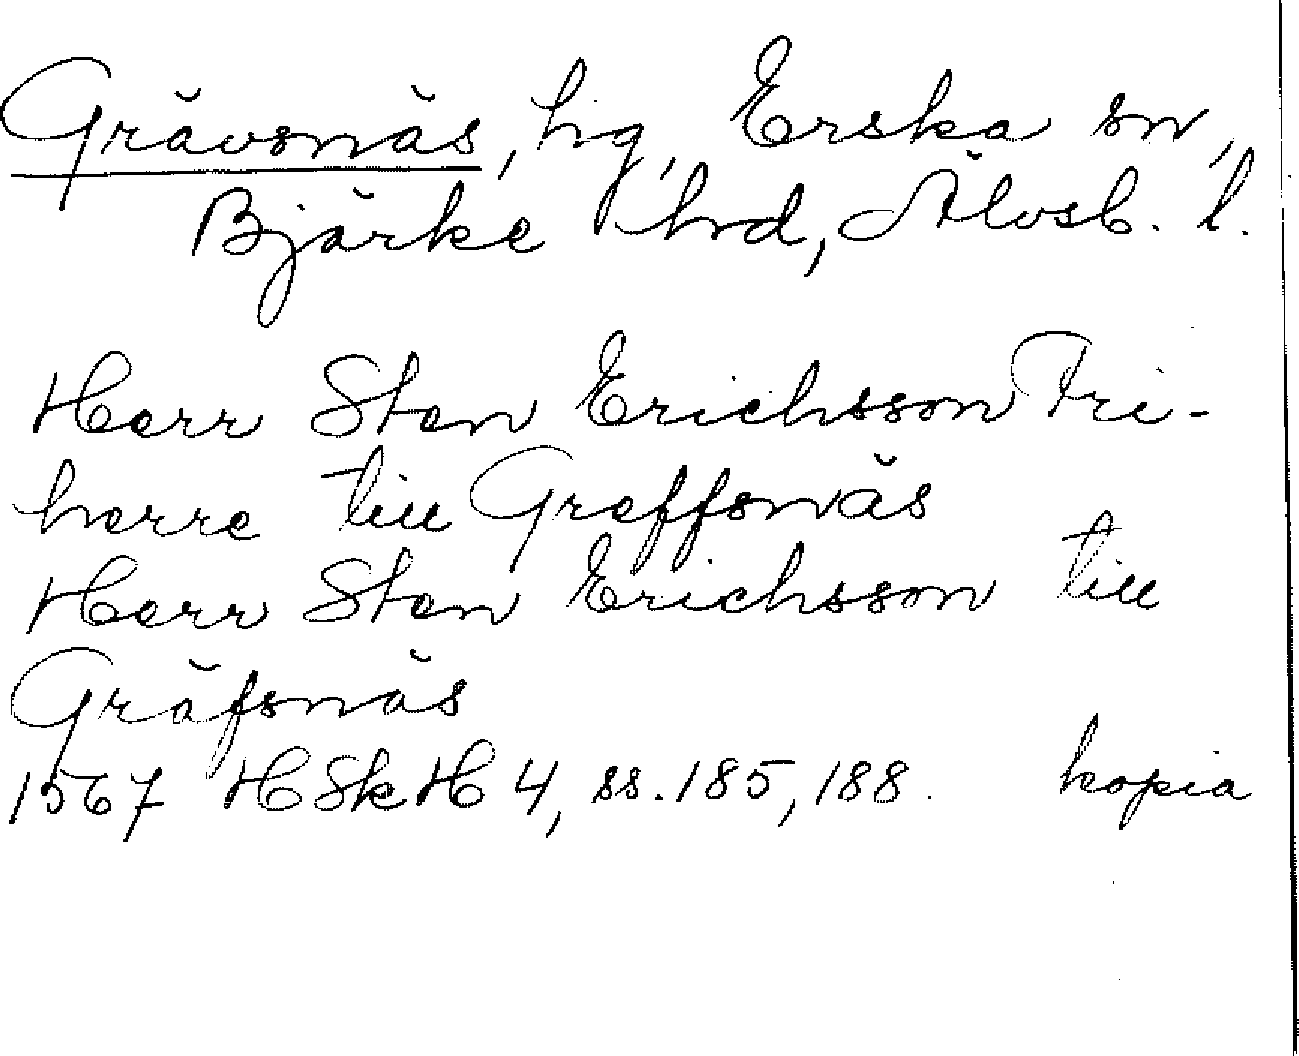 Grävsnäs, hg, Erska sn,
Bjärke hrd, Älvsb. l.
Herr Sten Erichsson Fri-
herre till Greffsnäs
Herr Sten Erichsson till
Gräfsnäs
1567 HSkH 4, ss. 185, 188. kopia